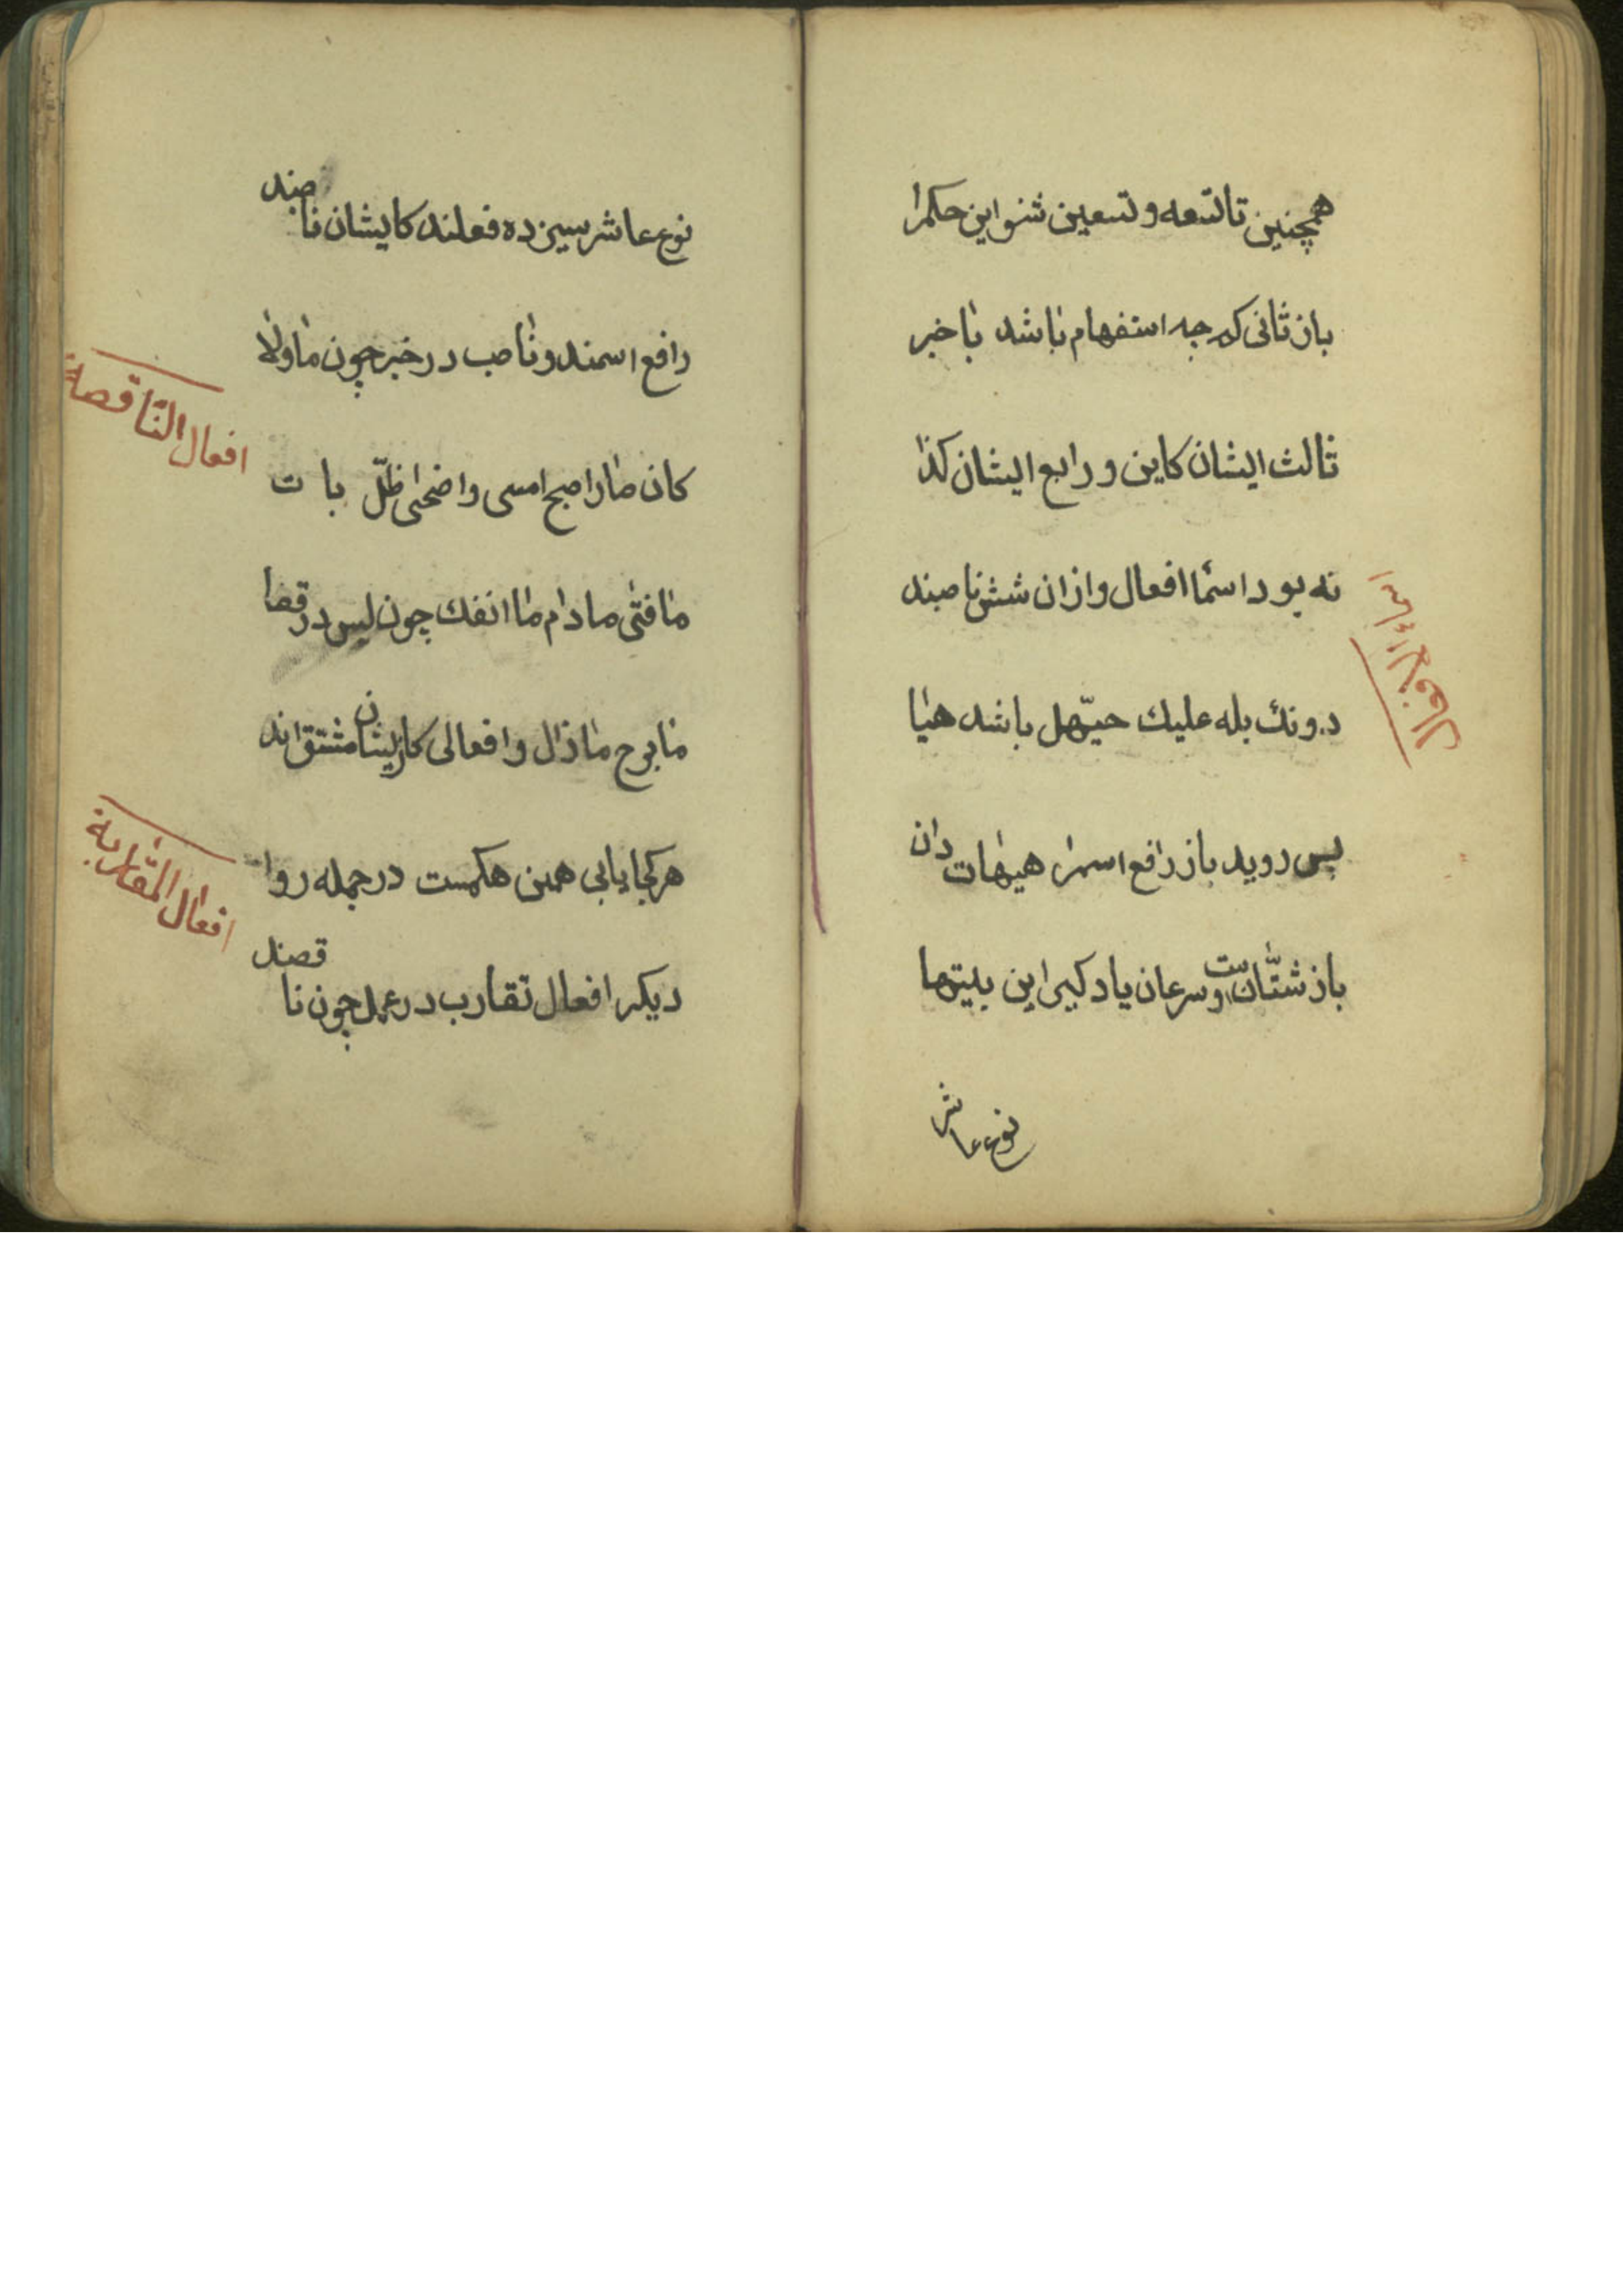 همچنین تا تسعه و تسعین شنو این حکمرا
باز ثانی کم چه استفهام باشد یا خبر
ثالث ایشان کاین و رابع ایشان کذا
نه بود اسما افعال و ازان شش ناصبند
اسماء افعال
دونك بله علیك حیّهل باشد هیا
پس روید باز رافع اسمرا هیهات دان
باز شتّانست و سرعان یاد کیر این بیتها
نوع عاشر
نوع عاشر سیزده فعلند کایشان ناصبند
رافع اسمند و ناصب در خبر چون ما و لا
افعال الناقصة
کان صار اصبح امسی و اضحی ظلّ بات
ما فتی مادام ما انفك چون لیس در قفا
ما برح ما زال و افعالی کز ایشان مشتق اند
هر کجا یابی همین هکمست در جمله روا
افعال المقاربة
دیکر افعال تقارب در عمل چون ناقصند